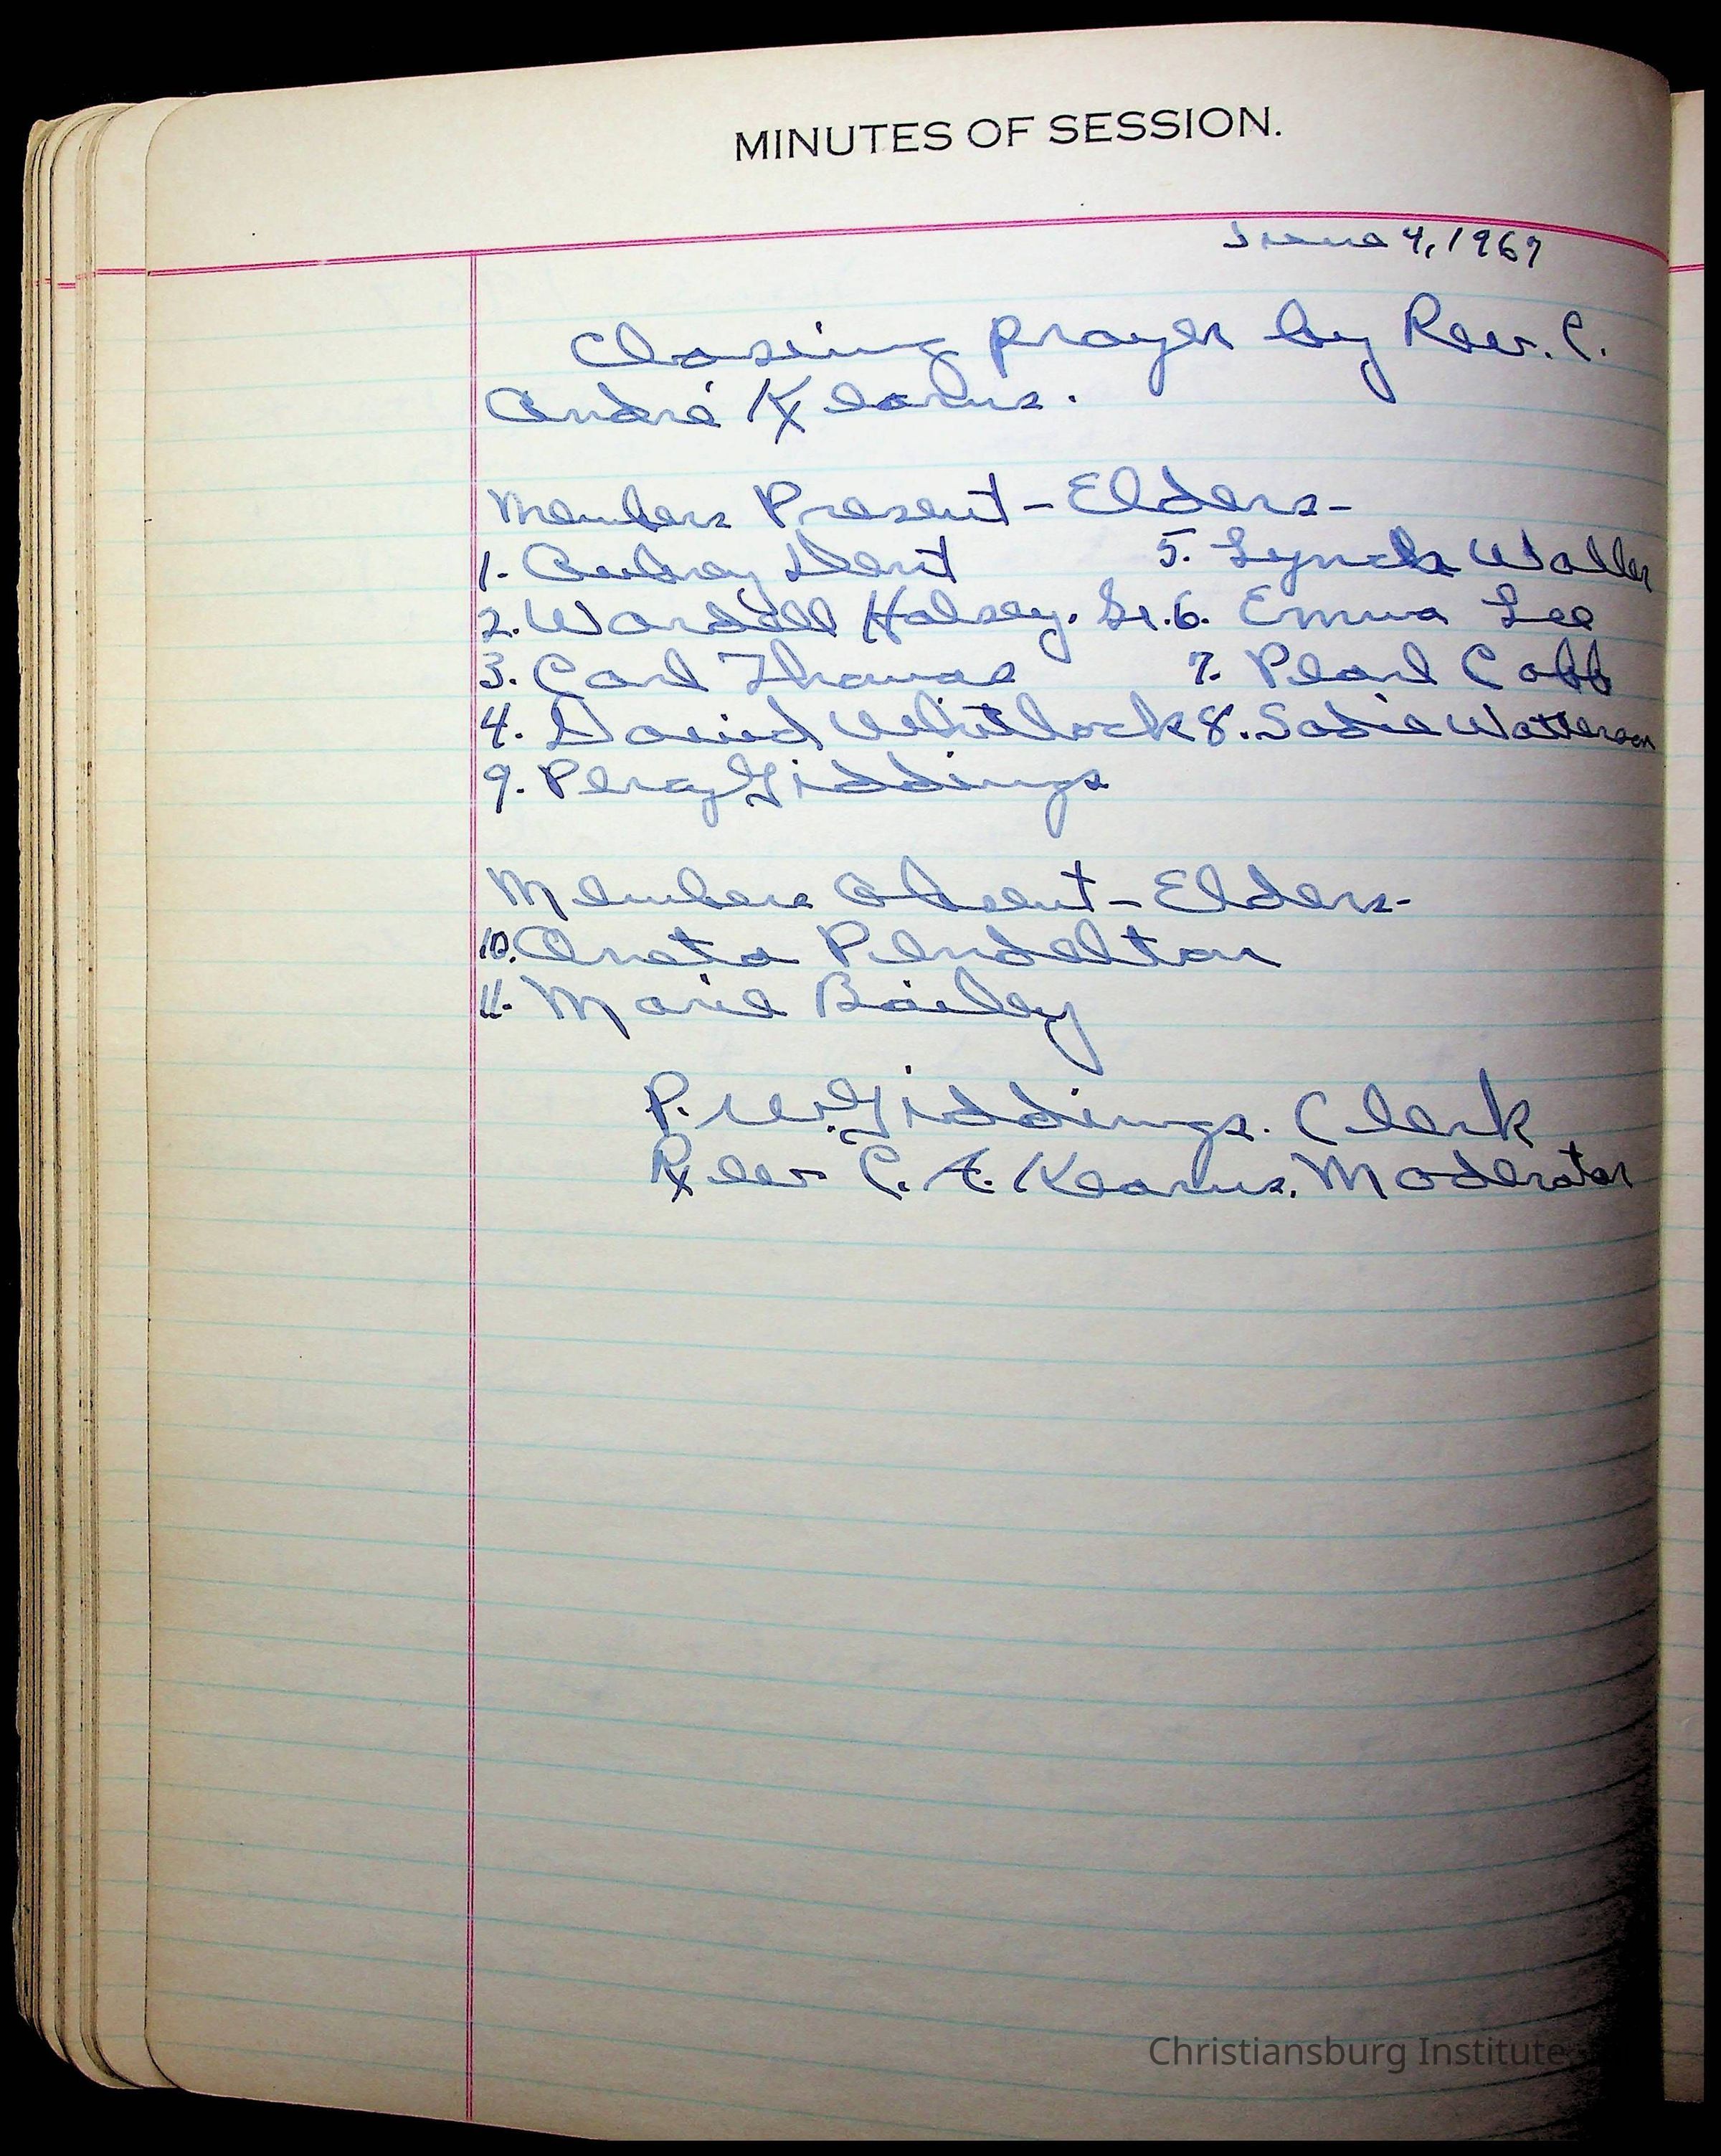 MINUTES OF SESSION.
June 4, 1967
Closing prayer by Rev. C.
André Kearns.
Members Present - Elders -
1. Aubrey Dent 5. Lynch Waller
2. Wardell Halsey. Sr. 6. Emma Lee
3. Carl Thomas 7. Pearl Cobb
4. David Whitlock 8. Sadie Watterson
9. Percy Giddings
Members Absent - Elders -
10. Aneta Pendelton
11. Marie Bailey
P. W. Giddings. Clerk
Rev. C. A. Kearns, Moderator
Christiansburg Institute